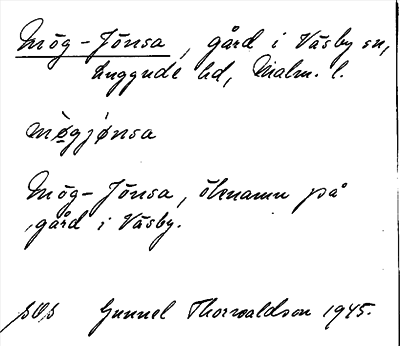 Mög-Jönsa, gård i Väsby sn,
Luggude hd, Malm. l.
mø̀gjǿnsa
Mög-Jönsa, öknamn på
gård i Väsby.
Gunnel Thorwaldson 1945.